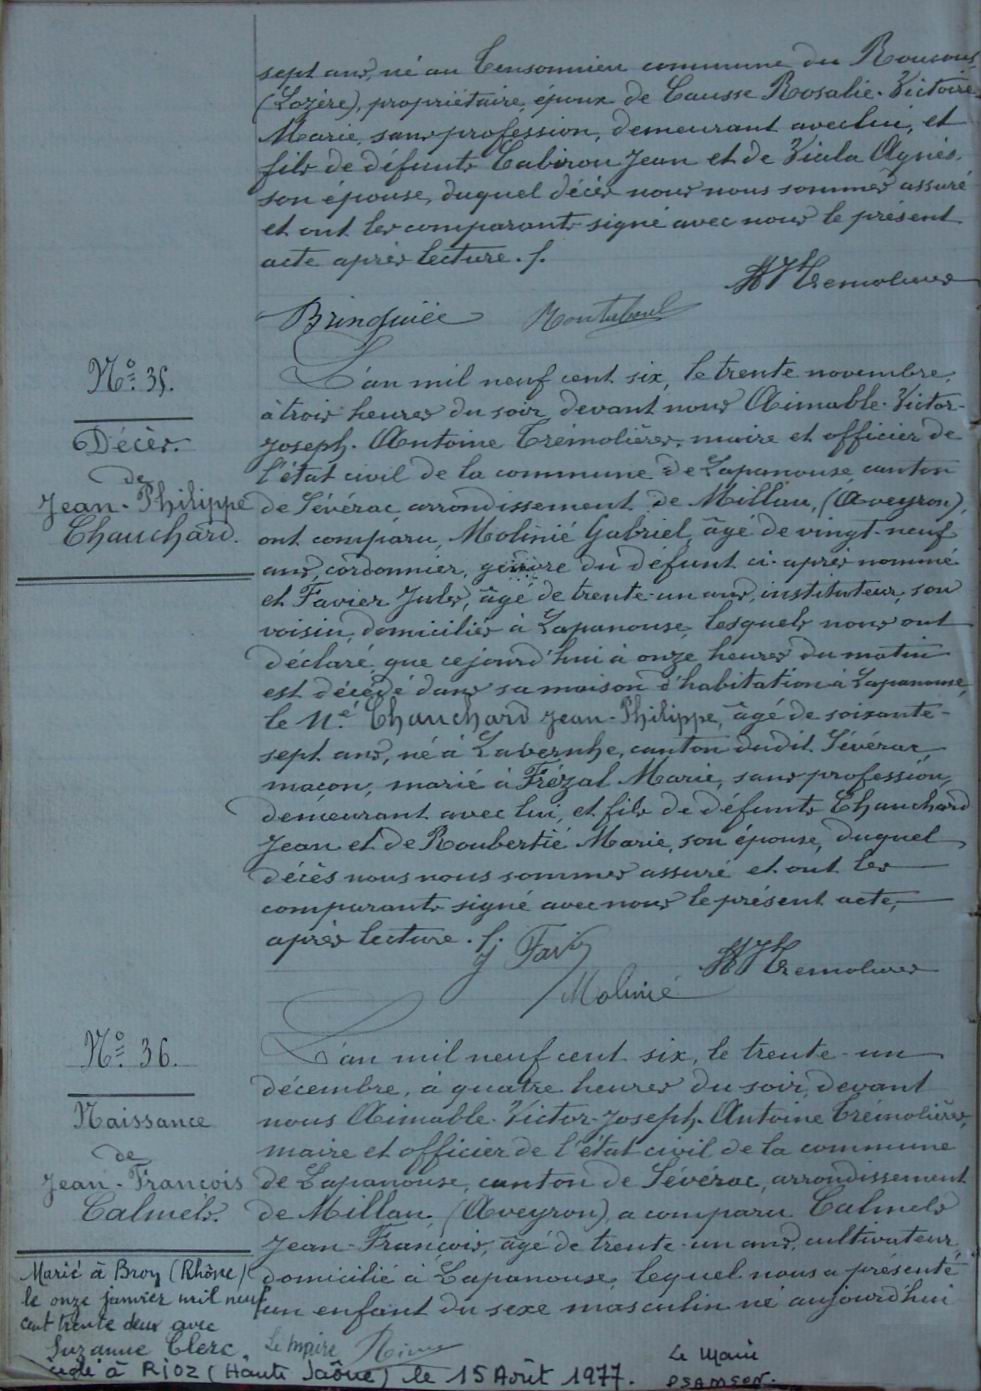 sept ans, né au commune du
(Lozère), propriétaire, époux de Causse Rosalie-Victoire-
Marie, sans profession, demeurant avec lui, et
fils de défunts Cabiron Jean et de Viala Agnès,
son épouse, duquel décès nous nous sommes assuré
et ont les comparants signé avec nous le présent
acte après lecture. /.
Tremolières
Bringuiée
N° 35.
Décès
de
Jean-Philippe
Chauchard.
L'an mil neuf cent six, le trente novembre,
à trois heures du soir, devant nous Aimable-Victor-
Joseph-Antoine Trémolières, maire et officier de
l'état civil de la commune de Lapanouse canton
de Sévérac arrondissement de Millau, (Aveyron),
ont comparu, Molinié Gabriel, âgé de vingt-neuf
ans, cordonnier, gendre du défunt ci-après nommé
et Favier Jules, âgé de trente-un ans, instituteur, son
voisin, domiciliés à Lapanouse, lesquels nous ont
déclaré que cejourd'hui à onze heures du matin
est décédé dans sa maison d'habitation à Lapanouse,
le N.é Chauchard Jean-Philippe, âgé de soixante-
sept ans, né à Lavernhe, canton dudit Sévérac
maçon, marié à Frézal Marie, sans profession,
demeurant avec lui, et fils de défunts Chauchard
Jean et de Roubertié Marie, son épouse, duquel
décès nous nous sommes assuré et ont les
comparants signé avec nous le présent acte,
après lecture. /.
J Favier
Tremolières
Molinié
N° 36.
Naissance
de
Jean-François
Calmels.
L'an mil neuf cent six, le trente-un
décembre, à quatre heures du soir, devant
nous Aimable-Victor-Joseph-Antoine Trémolières,
maire et officier de l'état civil de la commune
de Lapanouse, canton de Sévérac, arrondissement
de Millau, (Aveyron), a comparu Calmels
Jean-François, âgé de trente-un ans, cultivateur,
domicilié à Lapanouse, lequel nous a présenté
un enfant du sexe masculin né aujourd'hui
Marié à Bron (Rhône)
le onze janvier mil neuf
cent trente deux avec
Suzanne Clerc.
Le Maire
à RIOZ (Haute Saône) le 15 Août 1977.
Le Maire